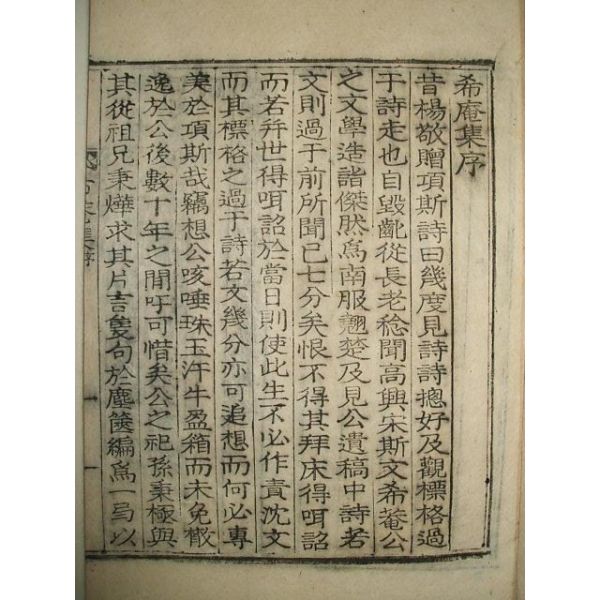 希庵集序
昔楊敬贈項斯詩曰幾度見詩詩摠好及觀標格過
于詩走也自毀齔從長老稔聞高興宋斯文希菴公
之文學造詣傑然爲南服翹楚及見公遺稿中詩若
文則過于前所聞已七分矣恨不得其拜床得咡詔
而若并世得咡詔於當日則使此生不必作責沈文
而其標格之過于詩若文幾分亦可追想而何必專
美於項斯哉竊想公咳唾珠玉汗牛盈箱而未免散
逸於公後數十年之間吁可惜矣公之祀孫秉極與
其從祖兄秉燁求其片言隻句於塵篋編爲一弓以